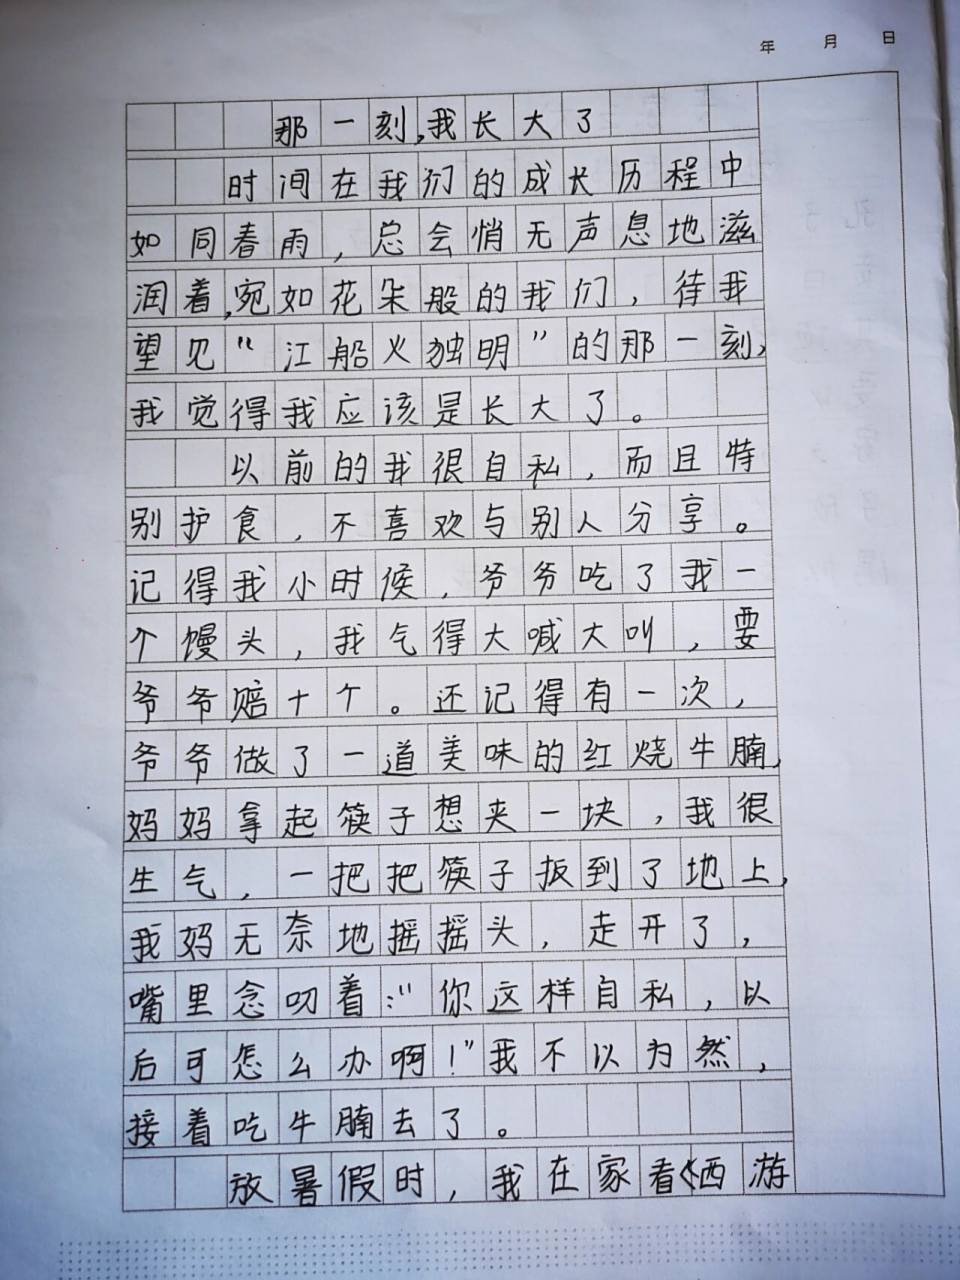 年 月 日
那一刻,我长大了
时间在我们的成长历程中
如同春雨，总会悄无声息地滋
润着,宛如花朵般的我们，待我
望见“江船火独明”的那一刻,
我觉得我应该是长大了。
以前的我很自私，而且特
别护食，不喜欢与别人分享。
记得我小时候，爷爷吃了我一
个馒头，我气得大喊大叫，要
爷爷赔十个。还记得有一次，
爷爷做了一道美味的红烧牛腩,
妈妈拿起筷子想夹一块，我很
生气，一把把筷子扳到了地上,
我妈无奈地摇摇头，走开了，
嘴里念叨着:“你这样自私，以
后可怎么办啊！”我不以为然，
接着吃牛腩去了。
放暑假时，我在家看《西游